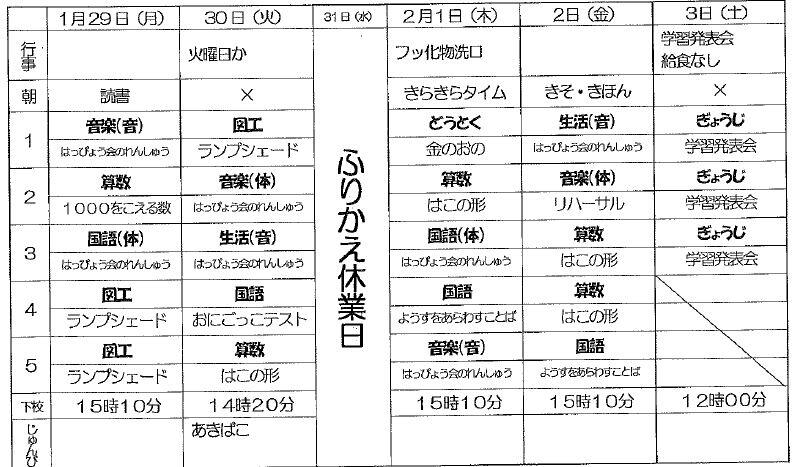 1月29日(月) 30日(火) 31日(水) 2月1日(木) 2日(金) 3日(土)
行事 火曜日か フッ化物洗口 学習発表会
給食なし
朝 読書 × きらきらタイム きそ・きほん ×
1 音楽(音) 図工 どうとく 生活(音) ぎょうじ
はっぴょう会のれんしゅう ランプシェード 金のおの はっぴょう会のれんしゅう 学習発表会
ふりかえ休業日
2 算数 音楽(体) 算数 音楽(体) ぎょうじ
1000をこえる数 はっぴょう会のれんしゅう はこの形 リハーサル 学習発表会
3 国語(体) 生活(音) 国語(体) 算数 ぎょうじ
はっぴょう会のれんしゅう はっぴょう会のれんしゅう はっぴょう会のれんしゅう はこの形 学習発表会
4 図工 国語 国語 算数
ランプシェード おにごっこテスト ようすをあらわすことば はこの形
5 図工 算数 音楽(音) 国語
ランプシェード はこの形 はっぴょう会のれんしゅう ようすをあらわすことば
下校 15時10分 14時20分 15時10分 15時10分 12時00分
じゅんび あきばこ